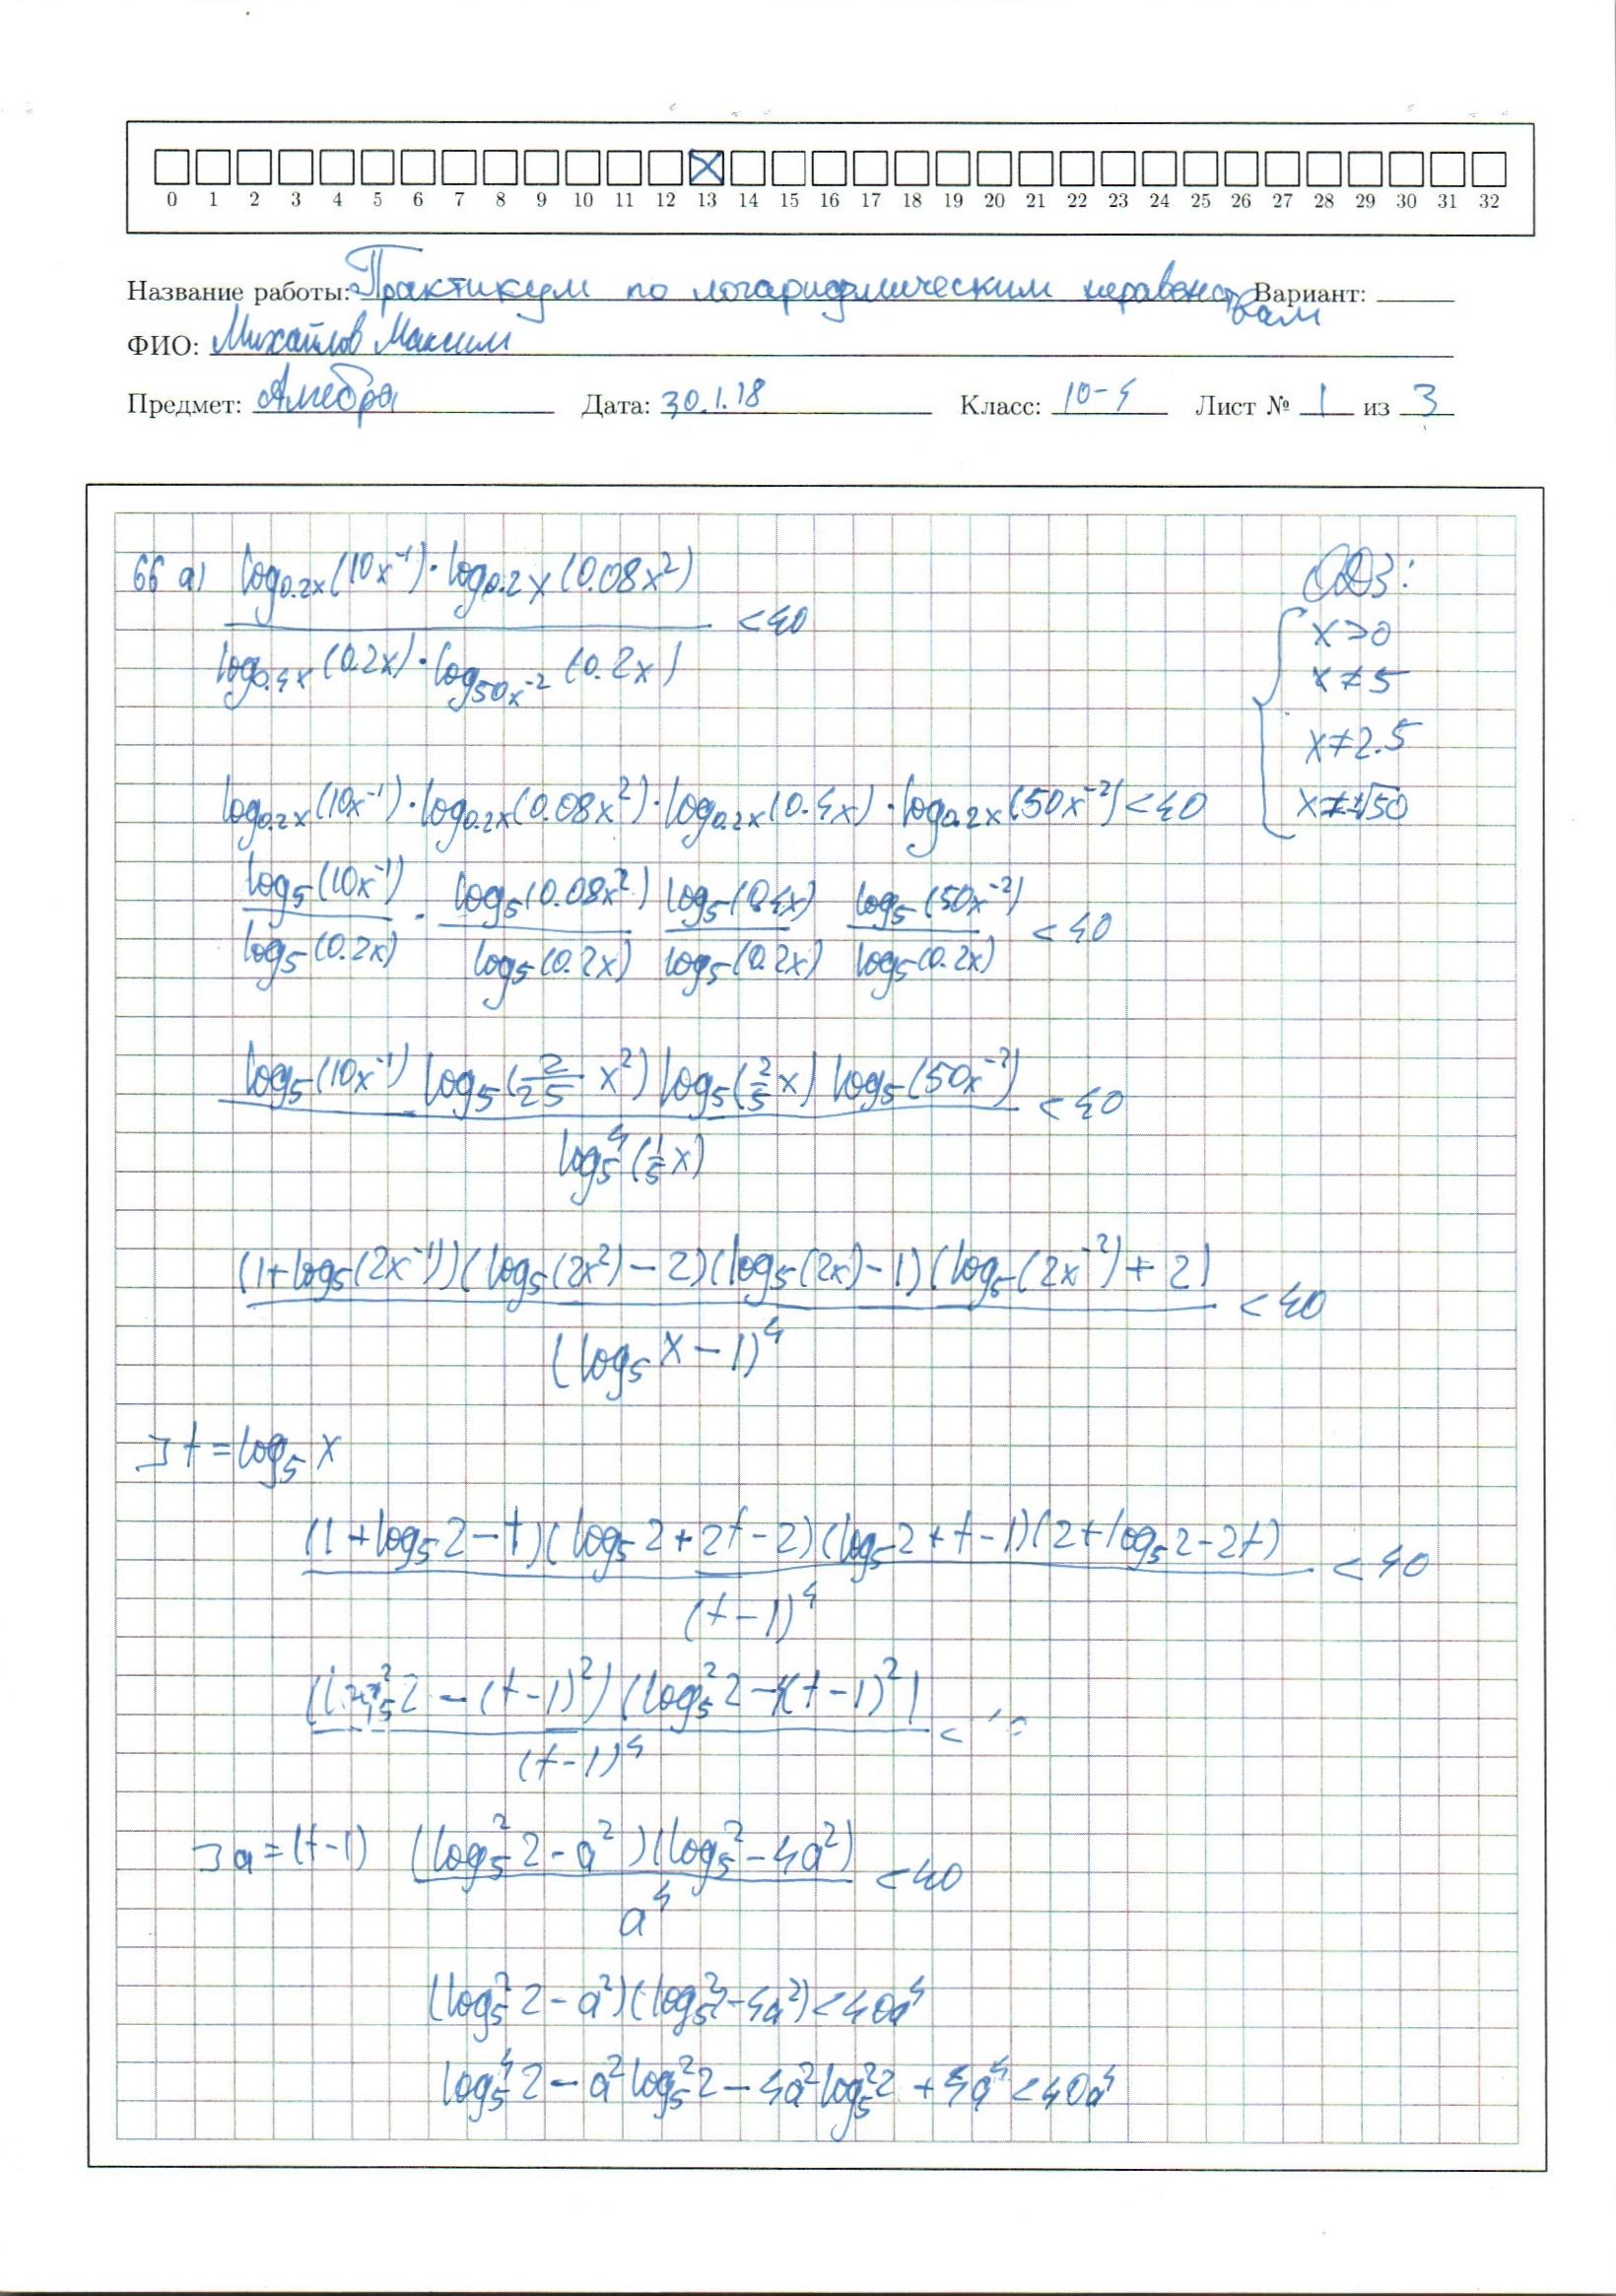 0 1 2 3 4 5 6 7 8 9 10 11 12 13 14 15 16 17 18 19 20 21 22 23 24 25 26 27 28 29 30 31 32
Название работы: Практикум по логарифмическим неравенствам Вариант:
ФИО: Михайлов Максим
Предмет: Алгебра Дата: 30.1.18 Класс: 10-4 Лист № 1 из 3
66 а) log₀.₂ₓ(10x⁻¹)·log₀.₂ₓ(0.08x²) / log₀.₄ₓ(0.2x)·log₅₀ₓ⁻²(0.2x) < 40
ОДЗ:
x>0
x≠5
x≠2.5
x≠±√50
log₀.₂ₓ(10x⁻¹)·log₀.₂ₓ(0.08x²)·log₀.₂ₓ(0.4x)·log₀.₂ₓ(50x⁻²)<40
log₅(10x⁻¹)/log₅(0.2x) · log₅(0.08x²)/log₅(0.2x) log₅(0.4x)/log₅(0.2x) log₅(50x⁻²)/log₅(0.2x) < 40
log₅(10x⁻¹) log₅(2/25 x²) log₅(2/5 x) log₅(50x⁻²) / log₅⁴(1/5 x) < 40
(1+log₅(2x⁻¹))(log₅(2x²)-2)(log₅(2x)-1)(log₅(2x⁻²)+2) / (log₅x-1)⁴ < 40
∃ t = log₅x
(1+log₅2-t)(log₅2+2t-2)(log₅2+t-1)(2+log₅2-2t) / (t-1)⁴ < 40
(log₅²2-(t-1)²)(log₅²2-4(t-1)²) / (t-1)⁴ <
∃ a=(t-1) (log₅²2-a²)(log₅²-4a²) / a⁴ < 40
(log₅²2-a²)(log₅²2-4a²)<40a⁴
log₅⁴2-a²log₅²2-4a²log₅²2+4a⁴<40a⁴